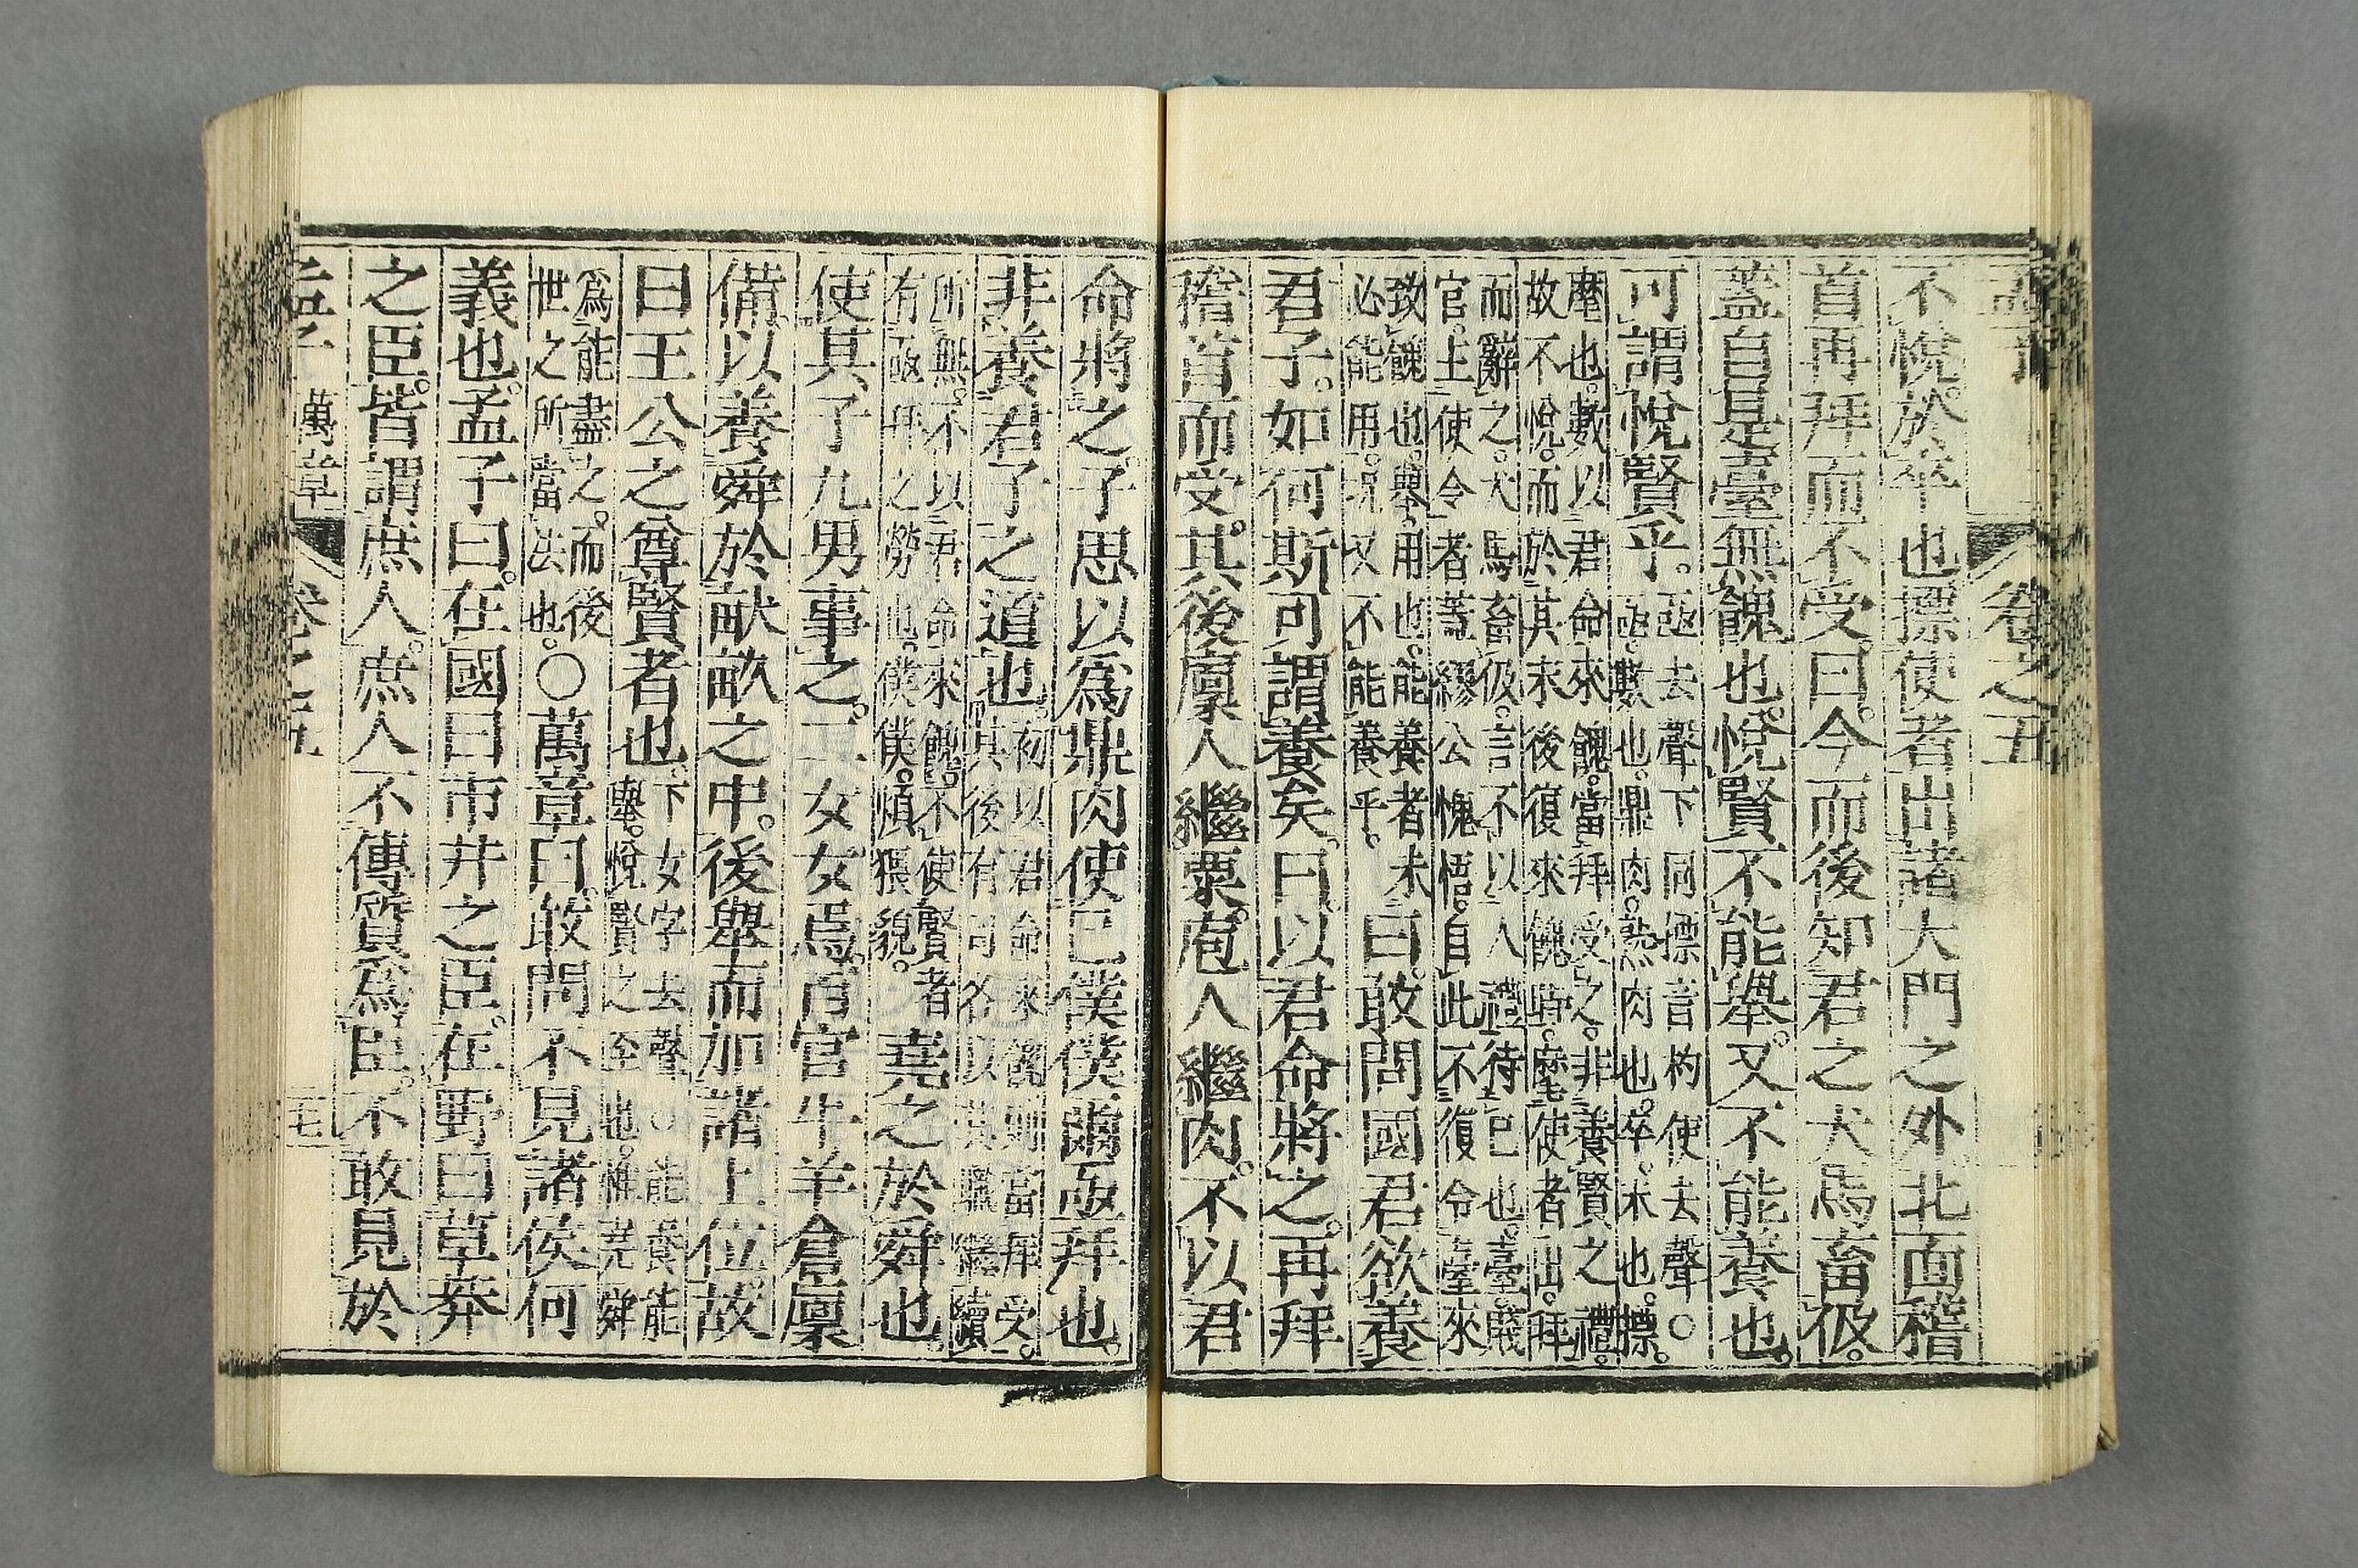 孟子 卷之五
不悅。於卒也摽使者出諸大門之外。北面稽
首再拜而不受。曰。今而後知君之犬馬畜伋。
蓋自是臺無餽也。悅賢不能舉。又不能養也。
可謂悅賢乎。亟去聲下同摽音杓使去聲○
亟。數也。鼎肉。熟肉也。卒。末也。摽。
麾也。數以君命來餽。當拜受之。非養賢之禮。
故不悅。而於其末後復來餽時。麾使者出。拜
而辭之。犬馬畜伋。言不以人禮待己也。臺。賤
官。主使令者。蓋繆公愧悟。自此不復令臺來
致餽也。舉。用也。能養者未
必能用。況又不能養乎。
曰。敢問國君欲養
君子。如何斯可謂養矣。曰。以君命將之。再拜
稽首而受。其後廩人繼粟。庖人繼肉。不以君
命將之。子思以爲鼎肉使己僕僕爾亟拜也。
非養君子之道也。初以君命來餽則當拜受。
其後有司各以其職繼續
所無。不以君命來餽。不使賢者
有亟拜之勞也。僕僕。煩猥貌。
堯之於舜也。
使其子九男事之。二女女焉。百官牛羊倉廩
備。以養舜於畎畝之中。後舉而加諸上位。故
曰王公之尊賢者也。下女字去聲○能養能
舉。悅賢之至也。惟堯舜
爲能盡之。而後
世之所當法也。
○萬章曰。敢問不見諸侯何
義也。孟子曰。在國曰市井之臣。在野曰草莽
之臣。皆謂庶人。庶人不傳質爲臣。不敢見於
孟子 萬章 卷之五